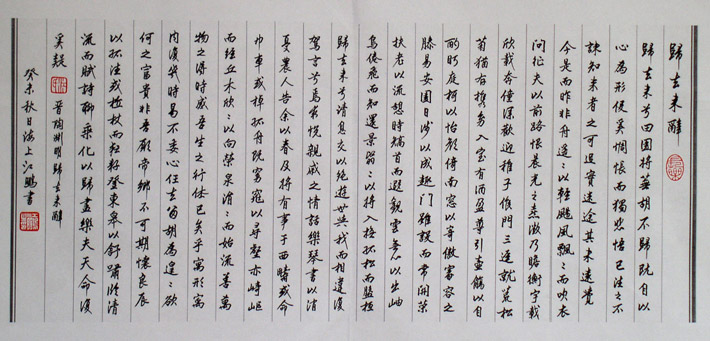 歸去來辭
歸去來兮田園將蕪胡不歸既自以
心為形役奚惆悵而獨悲悟已往之不
諫知來者之可追實迷途其未遠覺
今是而昨非舟遙々以輕颺風飄々而吹衣
問征夫以前路恨晨光之熹微乃瞻衡宇載
欣載奔僮僕歡迎稚子候門三逕就荒松
菊猶存攜幼入室有酒盈尊引壺觴以自
酌眄庭柯以怡顏倚南窗以寄傲審容之
膝易安園日涉以成趣門雖設而常關策
扶老以流憩時矯首而遐觀雲無心以出岫
鳥倦飛而知還景翳々以將入撫孤松而盤桓
歸去來兮請息交以絕遊世與我而相違復
駕言兮焉求悅親戚之情話樂琴書以消
憂農人告余以春及將有事于西疇或命
巾車或棹孤舟既窈窕以尋壑亦崎嶇
而經丘木欣々以向榮泉涓々而始流善萬
物之得時感吾生之行休已矣乎寓形寓
內復幾時曷不委心任去留胡為遑々欲
何之富貴非吾願帝鄉不可期懷良辰
以孤往或植杖而耘耔登東皋以舒嘯臨清
流而賦詩聊乘化以歸盡樂夫天命復
奚疑 晉陶淵明歸去來辭
癸未秋日海上江鵬書